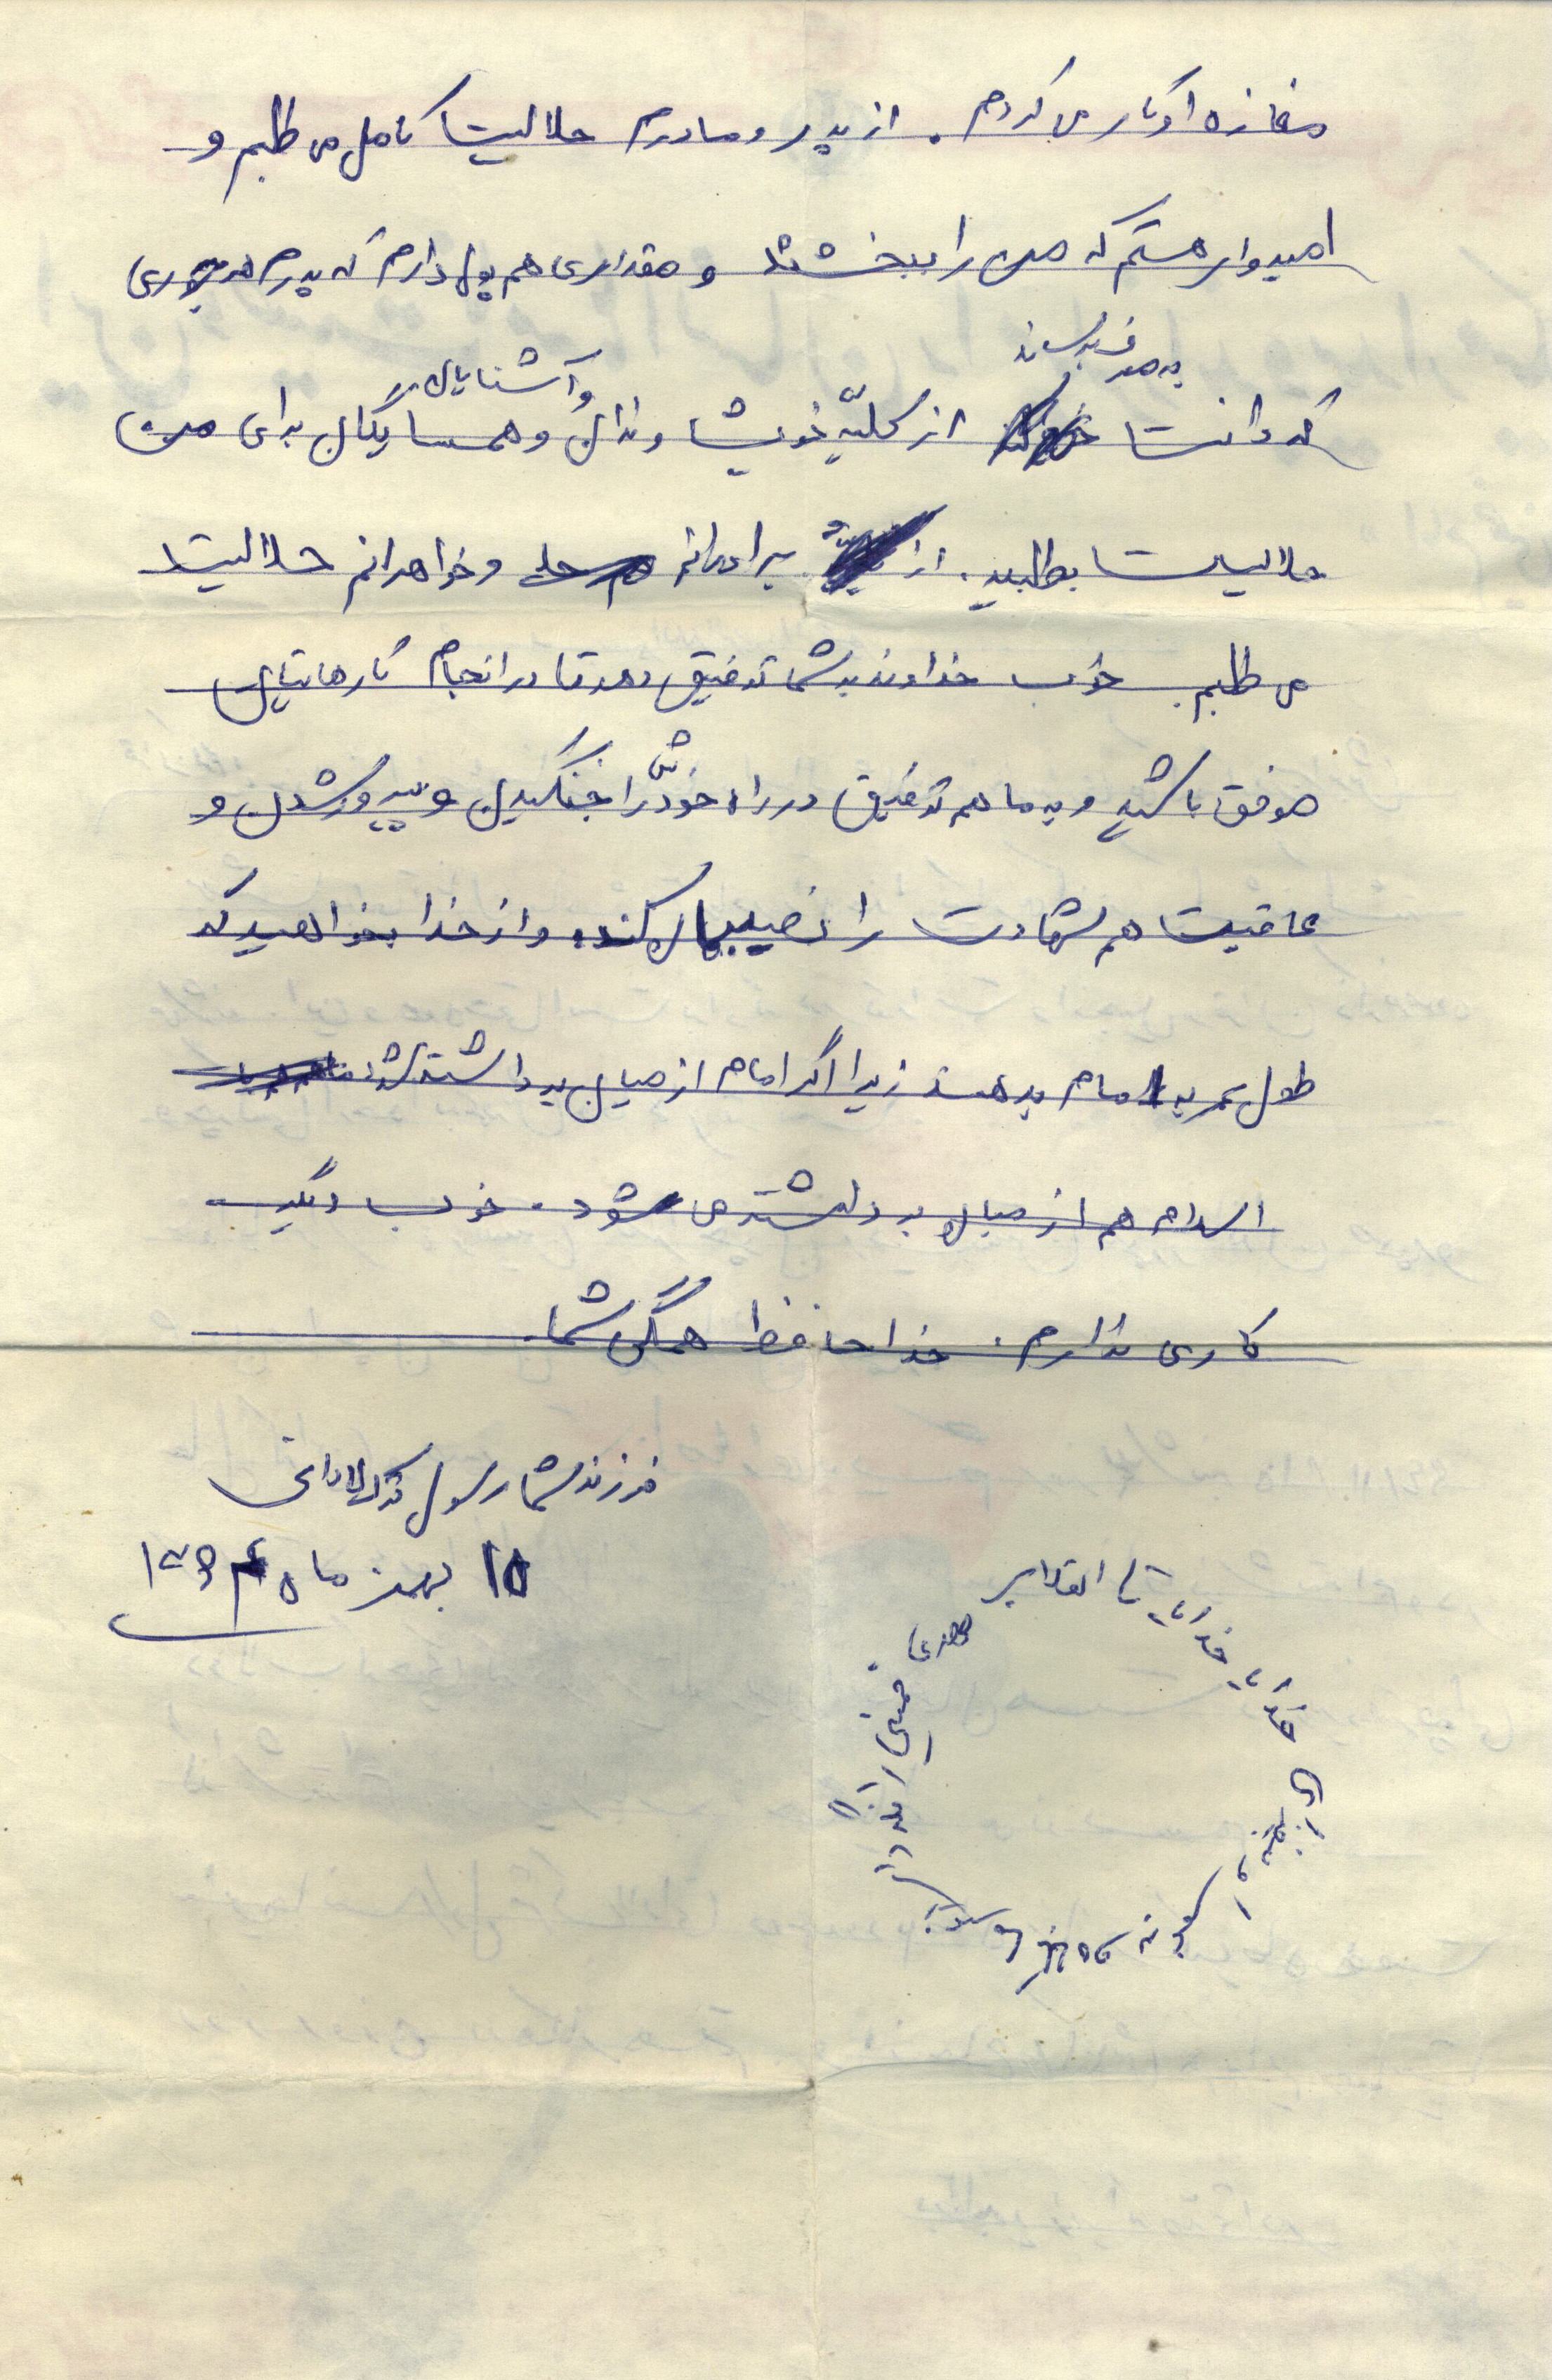 مغازه او کار می کردم . از پدر و مادرم حلالیت کامل می طلبم و
امیدوار هستم که من را ببخشند و مقداری هم پول دارم که پدرم هرجوری
به مصرف برساند
که دانست از کلیّه خویشاوندان و همسایگان برای من
و آشنایان
حلالیت بطلبید . از برادرانم و خواهرانم حلالیت
می طلبم . خوب خداوند به شما توفیق دهد تا در انجام کارهایتان
موفق باشید و به ما هم توفیق در راه خودش را جنگیدن و پیروز شدن و
عاقبت هم شهادت را نصیبمان کند . و از خدا بخواهید که
طول عمر به امام بدهد زیرا اگر امام از میان برداشته شود
اسلام هم از میان برداشته می شود . خوب دیگر
کاری ندارم . خداحافظ همگی شما .
فرزند شما رسول
۱۵ بهمن ماه ۱۳۶۴
خدایا خدایا تا انقلاب مهدی خمینی را نگهدار